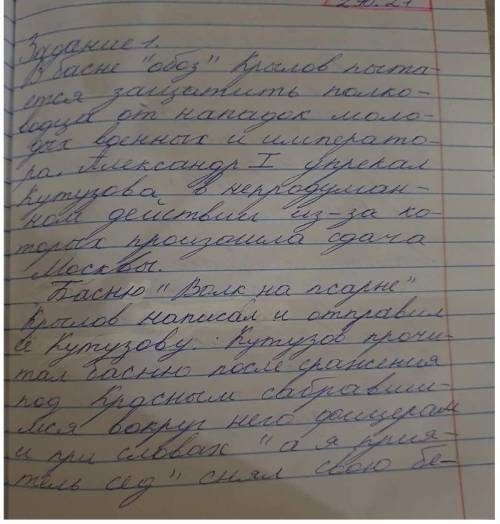 290.21
Задание 1.
В басне "обоз" Крылов пыта-
ется защитить полко-
водца от нападок моло-
дых военных и императо-
ра. Александр I упрекал
Кутузова в непродуман-
ном действии из-за ко-
торых произошла сдача
Москвы.
Басню "Волк на псарне"
Крылов написал и отправил
Кутузову. Кутузов прочи-
тал басню после сражения
под Красным сабравши-
мся вокруг него офицерам
и при словах "а я прия-
тель сед" снял свою бе-